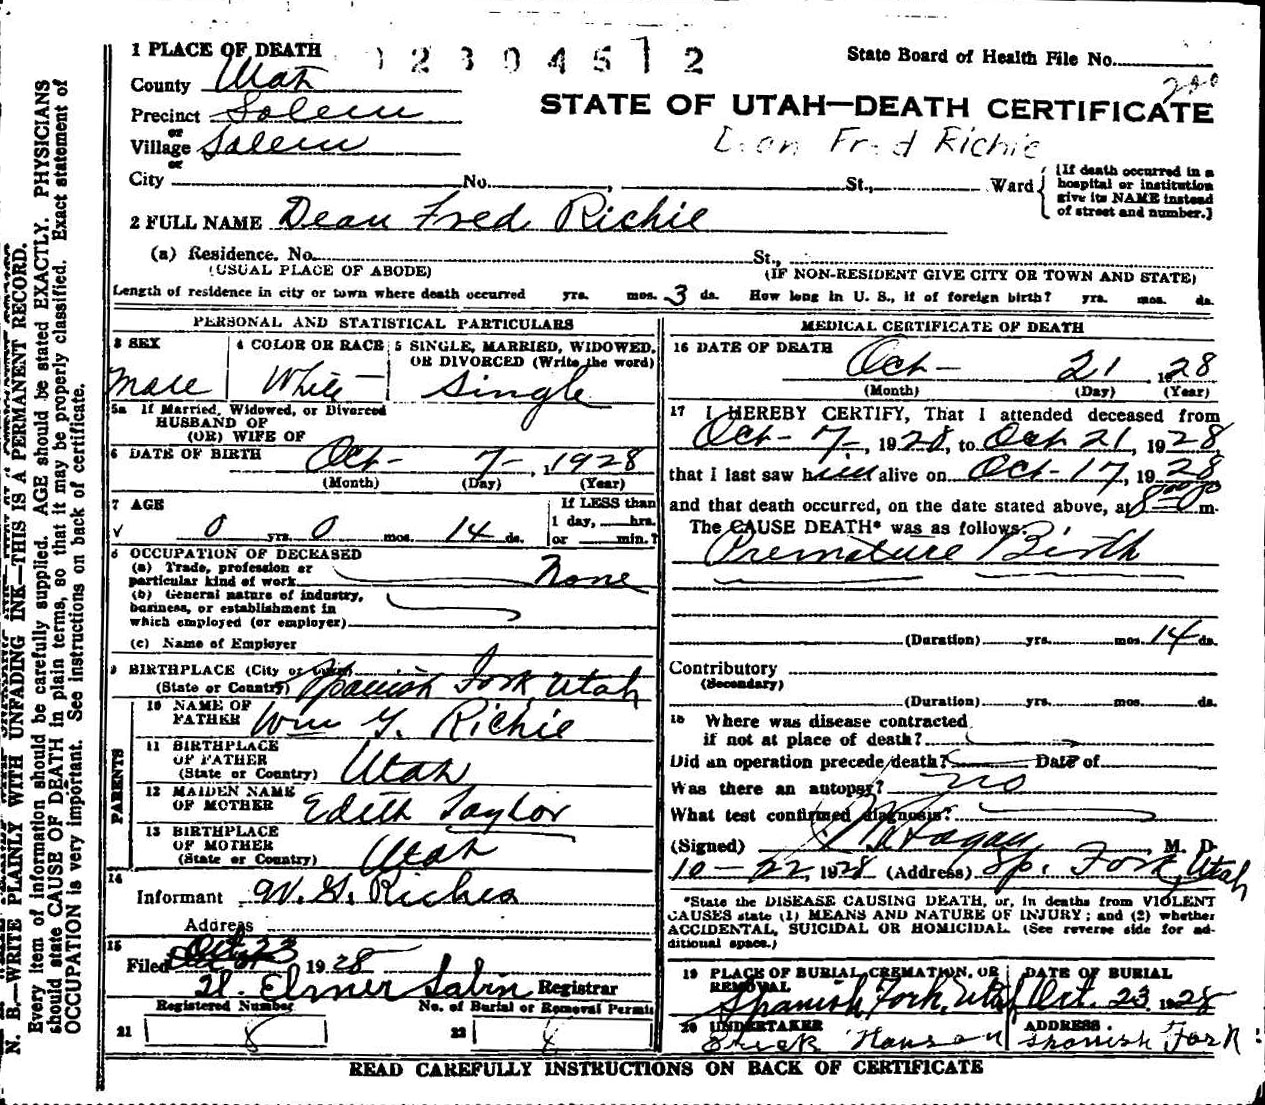 1 PLACE OF DEATH 2304512 State Board of Health File No.
County Utah 220
Precinct Salem STATE OF UTAH—DEATH CERTIFICATE
or Dean Fred Richie
Village Salem
or
City No. , St., Ward {(If death occurred in a hospital or institution give its NAME instead of street and number.)
2 FULL NAME Dean Fred Richie
(a) Residence. No. St.,
(USUAL PLACE OF ABODE) (IF NON-RESIDENT GIVE CITY OR TOWN AND STATE)
Length of residence in city or town where death occurred yrs. mos. 3 ds. How long in U. S., if of foreign birth? yrs. mos. ds.
PERSONAL AND STATISTICAL PARTICULARS
3 SEX 4 COLOR OR RACE 5 SINGLE, MARRIED, WIDOWED,
OR DIVORCED (Write the word)
Male White Single
5a If Married, Widowed, or Divorced
HUSBAND OF
(OR) WIFE OF
6 DATE OF BIRTH Oct- 7-, 1928
(Month) (Day) (Year)
7 AGE If LESS than
1 day, hrs.
0 yrs. 0 mos. 14 ds. or min.?
8 OCCUPATION OF DECEASED
(a) Trade, profession or
particular kind of work None
(b) General nature of industry,
business, or establishment in
which employed (or employer)
(c) Name of Employer
9 BIRTHPLACE (City or town)
(State or Country) Spanish Fork Utah
PARENTS
10 NAME OF
FATHER Wm G. Richie
11 BIRTHPLACE
OF FATHER
(State or Country) Utah
12 MAIDEN NAME
OF MOTHER Edith Taylor
13 BIRTHPLACE
OF MOTHER
(State or Country) Utah
14
Informant W. G. Riches
Address
15
Filed Oct 23 1928
Elmer Sabin Registrar
Registered Number No. of Burial or Removal Permit
21 8 22 4
MEDICAL CERTIFICATE OF DEATH
16 DATE OF DEATH
Oct- 21, 1928
(Month) (Day) (Year)
17 I HEREBY CERTIFY, That I attended deceased from
Oct- 7-, 1928, to Oct 21, 1928
that I last saw him alive on Oct-17, 1928
and that death occurred, on the date stated above, at 8-00 p m.
The CAUSE DEATH* was as follows:
Premature Birth
(Duration) yrs. mos. 14 ds.
Contributory
(Secondary)
(Duration) yrs. mos. ds.
18 Where was disease contracted
if not at place of death?
Did an operation precede death? Date of
Was there an autopsy? no
What test confirmed diagnosis?
(Signed) , M. D.
10-22, 1928 (Address) Sp. Fork, Utah
*State the DISEASE CAUSING DEATH, or, in deaths from VIOLENT
CAUSES state (1) MEANS AND NATURE OF INJURY; and (2) whether
ACCIDENTAL, SUICIDAL OR HOMICIDAL. (See reverse side for ad-
ditional space.)
19 PLACE OF BURIAL, CREMATION, OR DATE OF BURIAL
REMOVAL
Spanish Fork, Utah Oct. 23 1928
20 UNDERTAKER ADDRESS
Erick Hanson Spanish Fork
READ CAREFULLY INSTRUCTIONS ON BACK OF CERTIFICATE
N. B.—WRITE PLAINLY WITH UNFADING INK—THIS IS A PERMANENT RECORD.
Every item of information should be carefully supplied. AGE should be stated EXACTLY. PHYSICIANS
should state CAUSE OF DEATH in plain terms, so that it may be properly classified. Exact statement of
OCCUPATION is very important. See instructions on back of certificate.